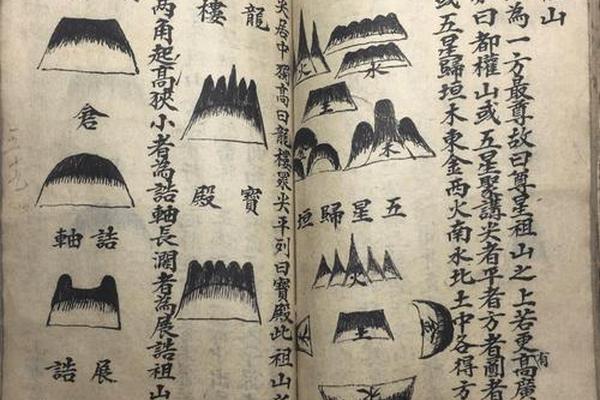 山
為一方最尊故曰尊星祖山之上若更高廣
有
曰都權山或五星聚講尖者平者方者圓者
或五星歸垣木東金西火南水北土中各得方
水
火
土
木
五星歸垣
火
土
水
尖居中獨高曰龍樓衆尖平列曰寶殿此祖山
龍樓
寶殿
兩角起高狹小者為誥軸長濶者為展誥祖山
倉
誥軸
展誥